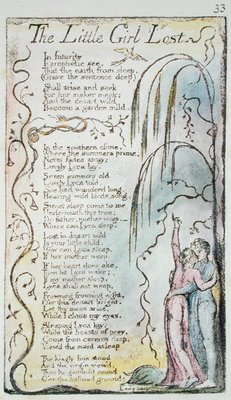 33
The Little Girl Lost
In futurity
I prophetic see,
That the earth from sleep,
(Grave the sentence deep)
Shall arise and seek
For her maker meek:
And the desart wild
Become a garden mild.
In the southern clime,
Where the summers prime,
Never fades away;
Lovely Lyca lay.
Seven summers old
Lovely Lyca told,
She had wanderd long,
Hearing wild birds song.
Sweet sleep come to me
Underneath this tree;
Do father, mother weep,
Where can Lyca sleep.
Lost in desart wild
Is your little child.
How can Lyca sleep,
If her mother weep.
If her heart does ake,
Then let Lyca wake;
If my mother sleep,
Lyca shall not weep.
Frowning frowning night,
O'er this desart bright,
Let thy moon arise,
While I close my eyes.
Sleeping Lyca lay;
While the beasts of prey,
Come from caverns deep,
View'd the maid asleep
The kingly lion stood
And the virgin view'd,
Then he gambold round
O'er the hallowd ground;